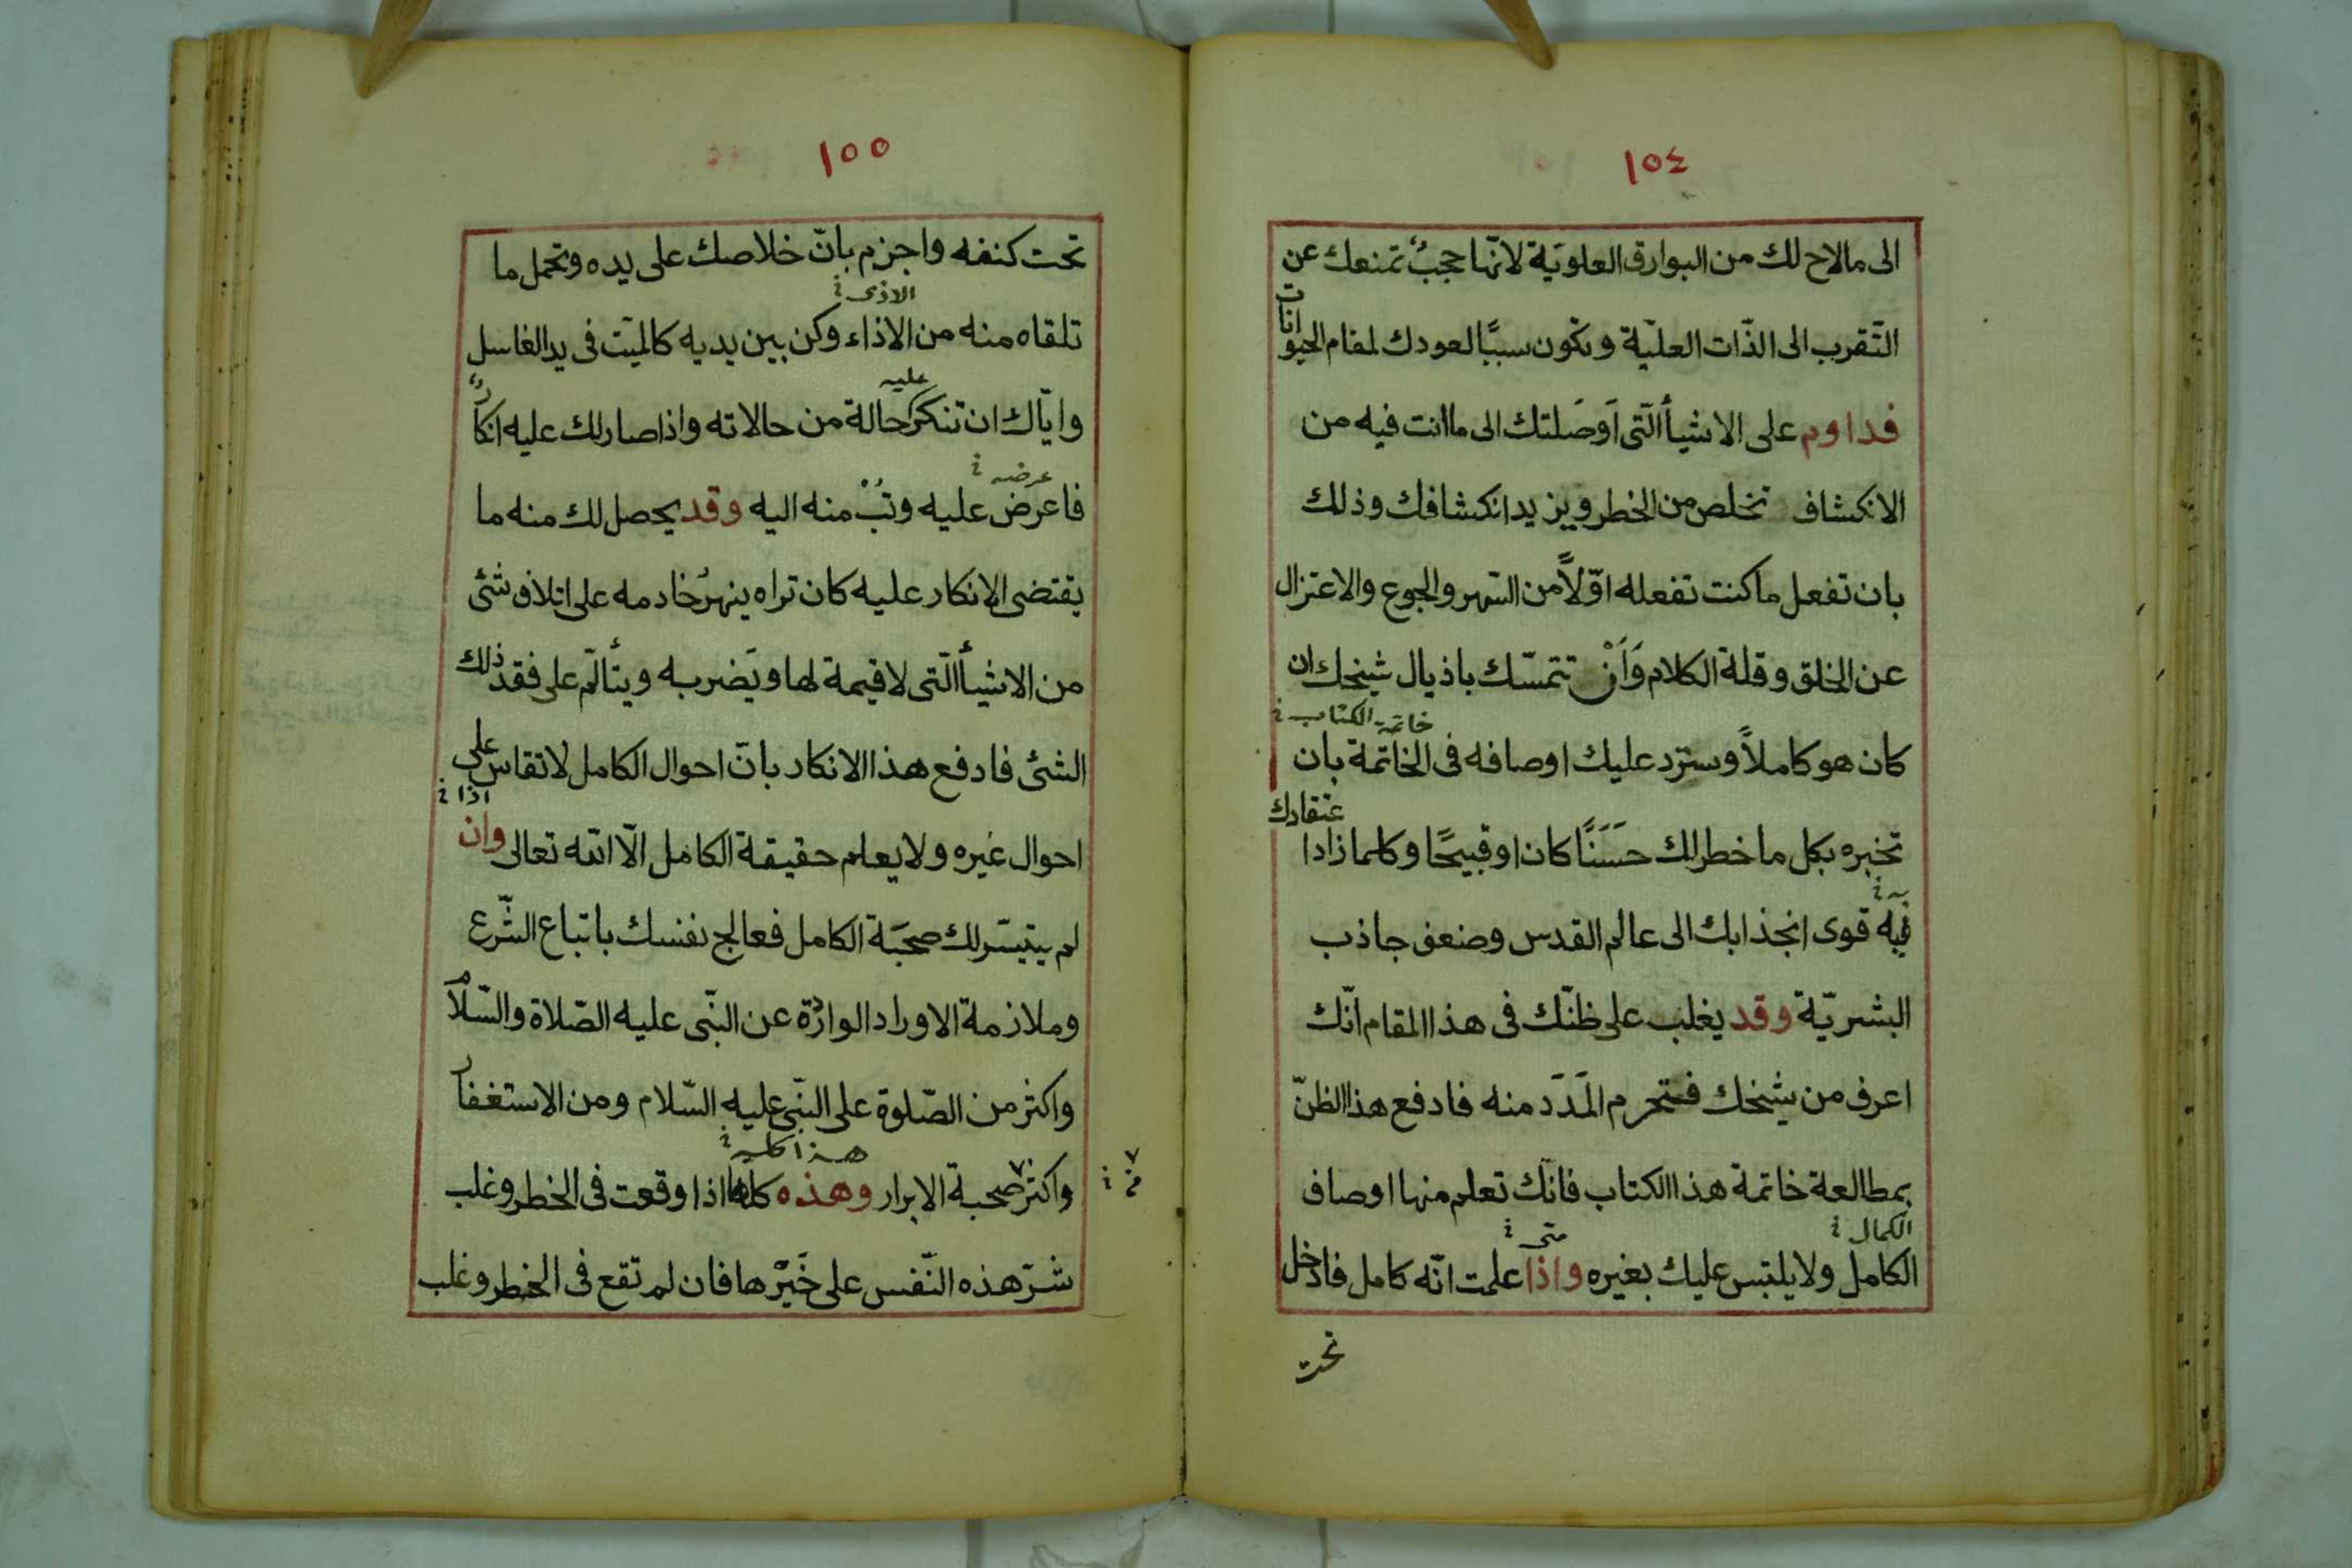 ١٥٤
الى مالاح لك من البوارق العلويّة لانّها حجبٌ تمنعك عن
التّقرب الى الذّات العليّة وتكون سببًا لعودك لمقام الحيوانات
فداوم على الاشيأ الّتى اَوصَلتك الى ما انت فيه من
الانكشاف تخلص من الخطر ويزيد انكشافك وذلك
بان تفعل ما كنت تفعله اوّلاً من السّهر والجوع والاعتزال
عن الخلق وقلة الكلام وَاَنْ تتمسّك باذيال شيخك ان
خاتمة الكتاب خ
كان هو كاملاً وسترد عليك اوصافه فى الخاتمة بان
تخبره بكل ما خطر لك حَسَنًا كان او قبيحًا وكلما زاد اعتقادك
فيه قوى انجذابك الى عالم القدس وضعف جاذب
البشريّة وقد يغلب على ظنّك فى هذا المقام انّك
اعرف من شيخك فتحرم المَدَدَ منه فادفع هذا الظنّ
بمطالعة خاتمة هذا الكتاب فانّك تعلم منها اوصاف
الكمال خ متى خ
الكامل ولا يلتبس عليك بغيره واذا علمت انّه كامل فادخل
تحت
١٥٥
تحت كنفه واجزم بانّ خلاصك على يده وتحمل ما
الاذى خ
تلقاه منه من الاذاء وكن بين يديه كالميّت فى يد الغاسل
عليه
وايّاك ان تنكر حالة من حالاته واذا صار لك عليه انكار
عرضه خ
فاعرض عليه وتُبْ منه اليه وقد يحصل لك منه ما
يقتضى الانكار عليه كان تراه ينهرُ خادمه على اتلاف شئ
من الاشيأ الّتى لا قيمة لها ويَضربه ويتألّم على فقد ذلك
الشئ فادفع هذا الانكار بانّ احوال الكامل لا تقاس على
اذا خ
احوال غيره ولا يعلم حقيقة الكامل الّا الله تعالى وان
لم يتيسّر لك صحبَة الكامل فعالج نفسك باتباع الشّرع
وملازمة الاوراد الواردة عن النّبى عليه الصّلاة والسّلام
واكثر من الصّلوة على النّبى عليه السّلام ومن الاستغفار
هذا كله خ
واكثر صحبة الابرار وهذه كلها اذا وقعت فى الخطر وغلب
من خ
شرّ هذه النّفس على خَيْرها فان لم تقع فى الخطر وغلب